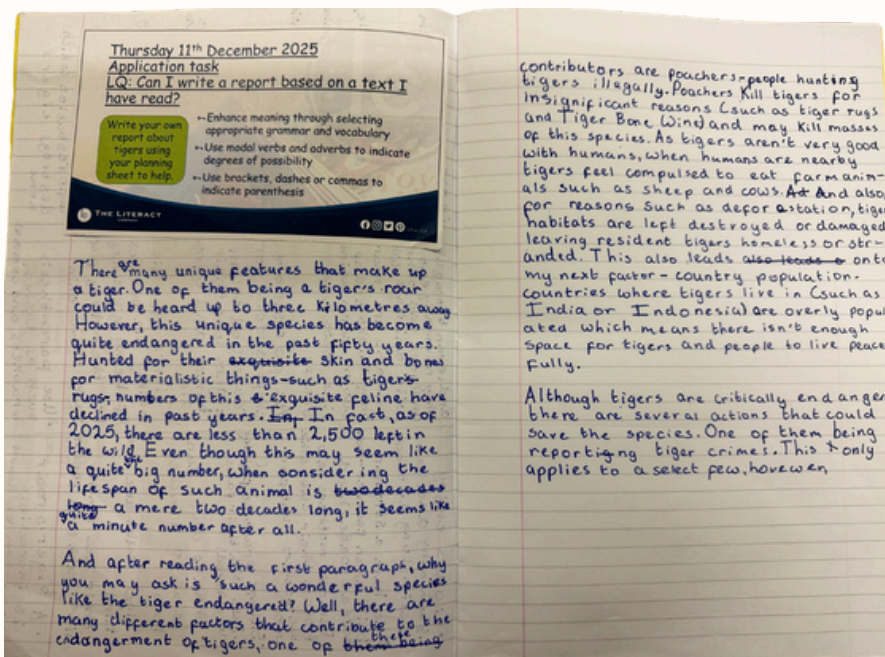 Thursday 11th December 2025
Application task
LQ: Can I write a report based on a text I
have read?
Write your own
report about
tigers using
your planning
sheet to help.
Enhance meaning through selecting
appropriate grammar and vocabulary
Use modal verbs and adverbs to indicate
degrees of possibility
Use brackets, dashes or commas to
indicate parenthesis
THE LITERACY
COMPANY
There are many unique features that make up
a tiger. One of them being a tiger's roar
could be heard up to three kilometres away.
However, this unique species has become
quite endangered in the past fifty years.
Hunted for their exquisite skin and bones
for materialistic things-such as tiger's-
rugs, numbers of this exquisite feline have
declined in past years. In, In fact, as of
2025, there are less than 2,500 left in
the wild. Even though this may seem like
a quite big number, when sonsidering the
lifespan of such animal is two decades
long a mere two decades long, it seems like
quite a minute number after all.
And after reading the first paragraph, why
you may ask is such a wonderful species
like the tiger endangered? Well, there are
many different factors that contribute to the
endangerment of tigers, one of them being these
contributors are poachers-people hunting
tigers illegally. Poachers kill tigers for
insignificant reasons (such as tiger rugs
and Tiger Bone Wine) and may kill masses
of this species. As tigers aren't very good
with humans, when humans are nearby
tigers feel compulsed to eat farm anim-
als such as sheep and cows. And also,
for reasons such as deforestation, tige
habitats are left destroyed or damaged
leaving resident tigers homeless or str-
anded. This also leads also leads onto
my next factor - country population.
countries where tigers live in (such as
India or Indonesia) are overly popul
ated which means there isn't enough
space for tigers and people to live peace
fully.
Although tigers are critically endanger
there are several actions that could
save the species. One of them being
reporting tiger crimes. This only
applies to a select few, hovewer,